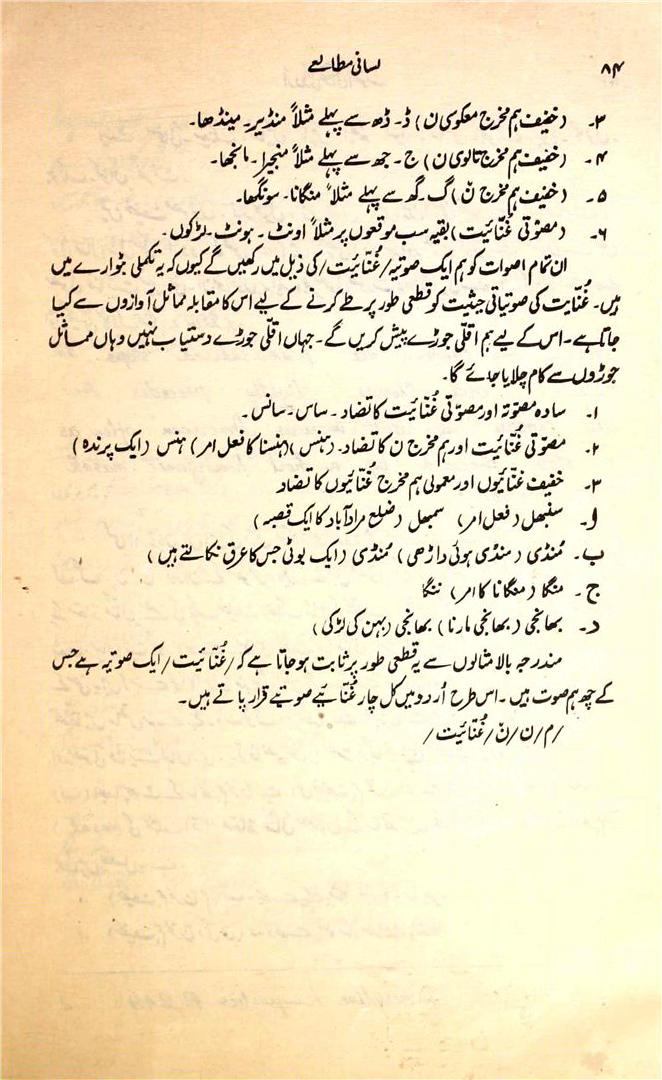 ۸۴ لسانی مطالعے
۳۔ (خفیف ہم مخرج معکوسی ن) ڈ۔ ڈھ سے پہلے مثلاً منڈیر۔ مینڈھا۔
۴۔ (خفیف ہم مخرج تالوی ن) ج۔ جھ سے پہلے مثلاً منجیرا۔ مانجھا۔
۵۔ (خفیف ہم مخرج نٚ) گ۔ گھ سے پہلے مثلاً منگانا۔ سونگھا۔
۶۔ (مصوّتی غُنّائیت) بقیہ سب موقعوں پر مثلاً اونٹ۔ ہونٹ۔ لڑکوں۔
ان تمام اصوات کو ہم ایک صوتیہ /غُنّائیت/ کی ذیل میں رکھیں گے کیوں کہ یہ تکملی بٹوارے میں
ہیں۔ غُنّایت کی صوتیاتی حیثیت کو قطعی طور پر طے کرنے کے لیے اس کا مقابلہ مماثل آوازوں سے کیا
جاتا ہے۔ اس کے لیے ہم اقلّی جوڑے پیش کریں گے۔ جہاں اقلّی جوڑے دستیاب نہیں وہاں مماثل
جوڑوں سے کام چلایا جائے گا۔
۱۔ سادہ مصوّتہ اور مصوّتی غُنّائیت کا تضاد۔ ساس۔ سانس۔
۲۔ مصوّتی غُنّائیت اور ہم مخرج ن کا تضاد۔ (ہنس) (ہنسنا کا فعل امر) ہنس (ایک پرندہ)
۳۔ خفیف غنّائیوں اور معمولی ہم مخرج غُنّائیوں کا تضاد
ا۔ سنبھل (فعل امر) سمبھل (ضلع مرادآباد کا ایک قصبہ)
ب۔ مُنڈی (منڈی ہوئی داڑھی) مُنڈی (ایک بوٹی جس کا عرق نکالتے ہیں)
ج۔ منگا (منگانا کا امر) ننگا
د۔ بھانجی (بھانجی مارنا) بھانجی (بہن کی لڑکی)
مندرجہ بالا مثالوں سے یہ قطعی طور پر ثابت ہو جاتا ہے کہ /غُنّائیت/ ایک صوتیہ ہے جس
کے چھ ہم صوت ہیں۔ اس طرح اُردو میں کل چار غُنّائیے صوتیے قرار پاتے ہیں۔
/م/ن/نٚ/غُنّائیت/